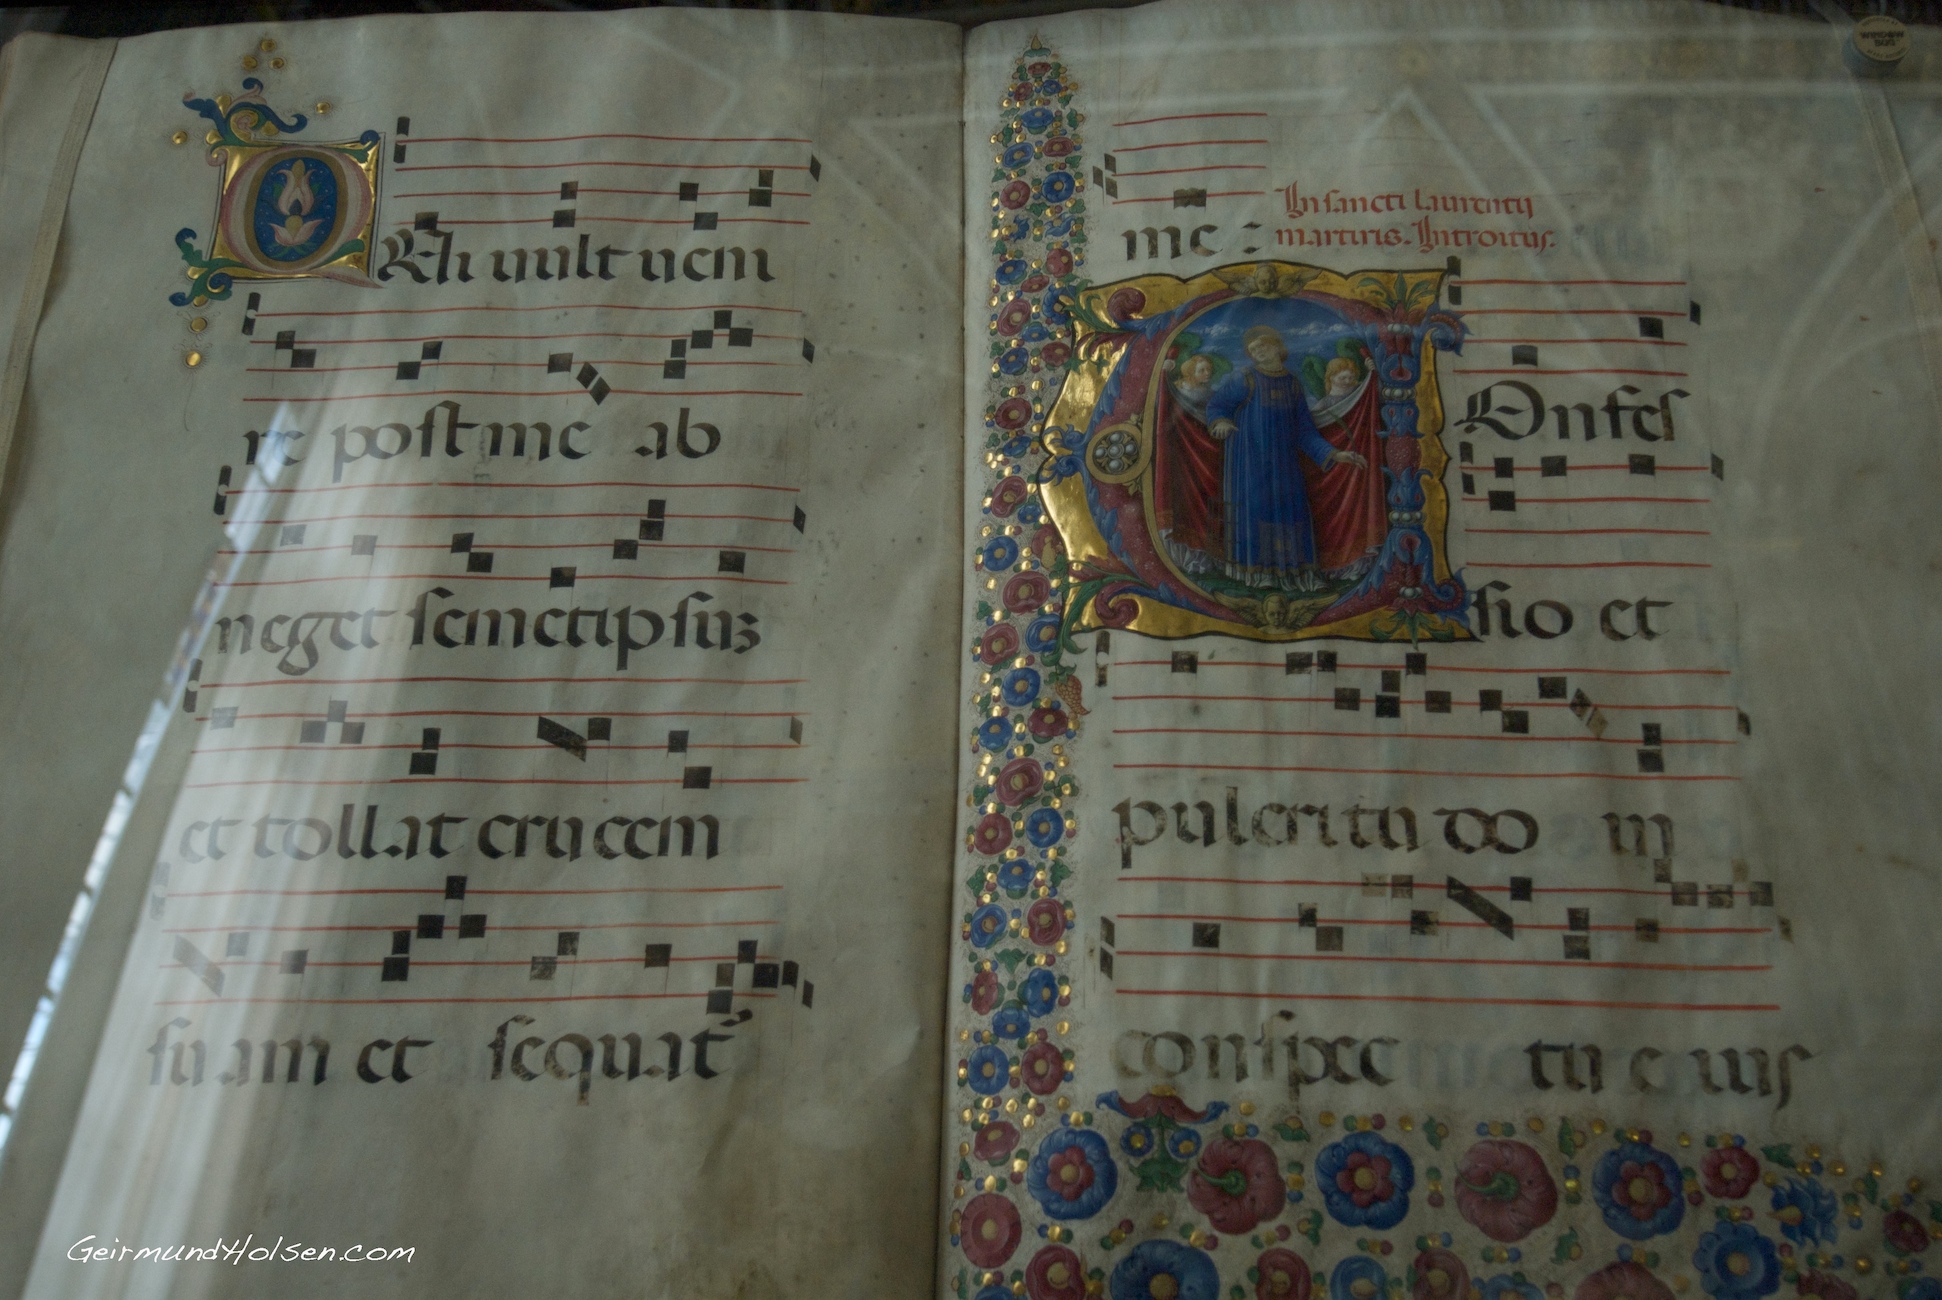 QUi uult ueni
re post me ab
neget semetipsuz
et tollat crucem
suam et sequat̃
me :
In sancti laurentij
martiris. Introitus.
COnfes
sio et
pulcritudo in
conspectu eius
WINDOW
BUG
GeirmundHolsen.com